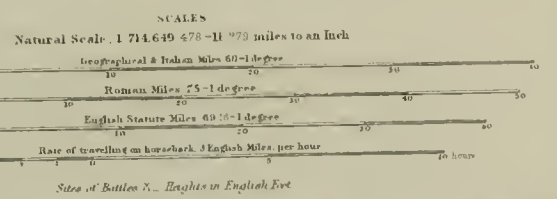 SCALES
Natural Scale. 1 714.649 478 - 11 279 miles to an Inch
Geographical & Italian Miles 60 = 1 degree
10 20 30 40
Roman Miles 75 = 1 degree
10 20 30 40 50
English Statute Miles = 1 degree
10 20 30 40 50 60
Rate of travelling on horseback. 3 English Miles. per hour
5 10 hours
Sites of Battles X_ Heights in English Feet